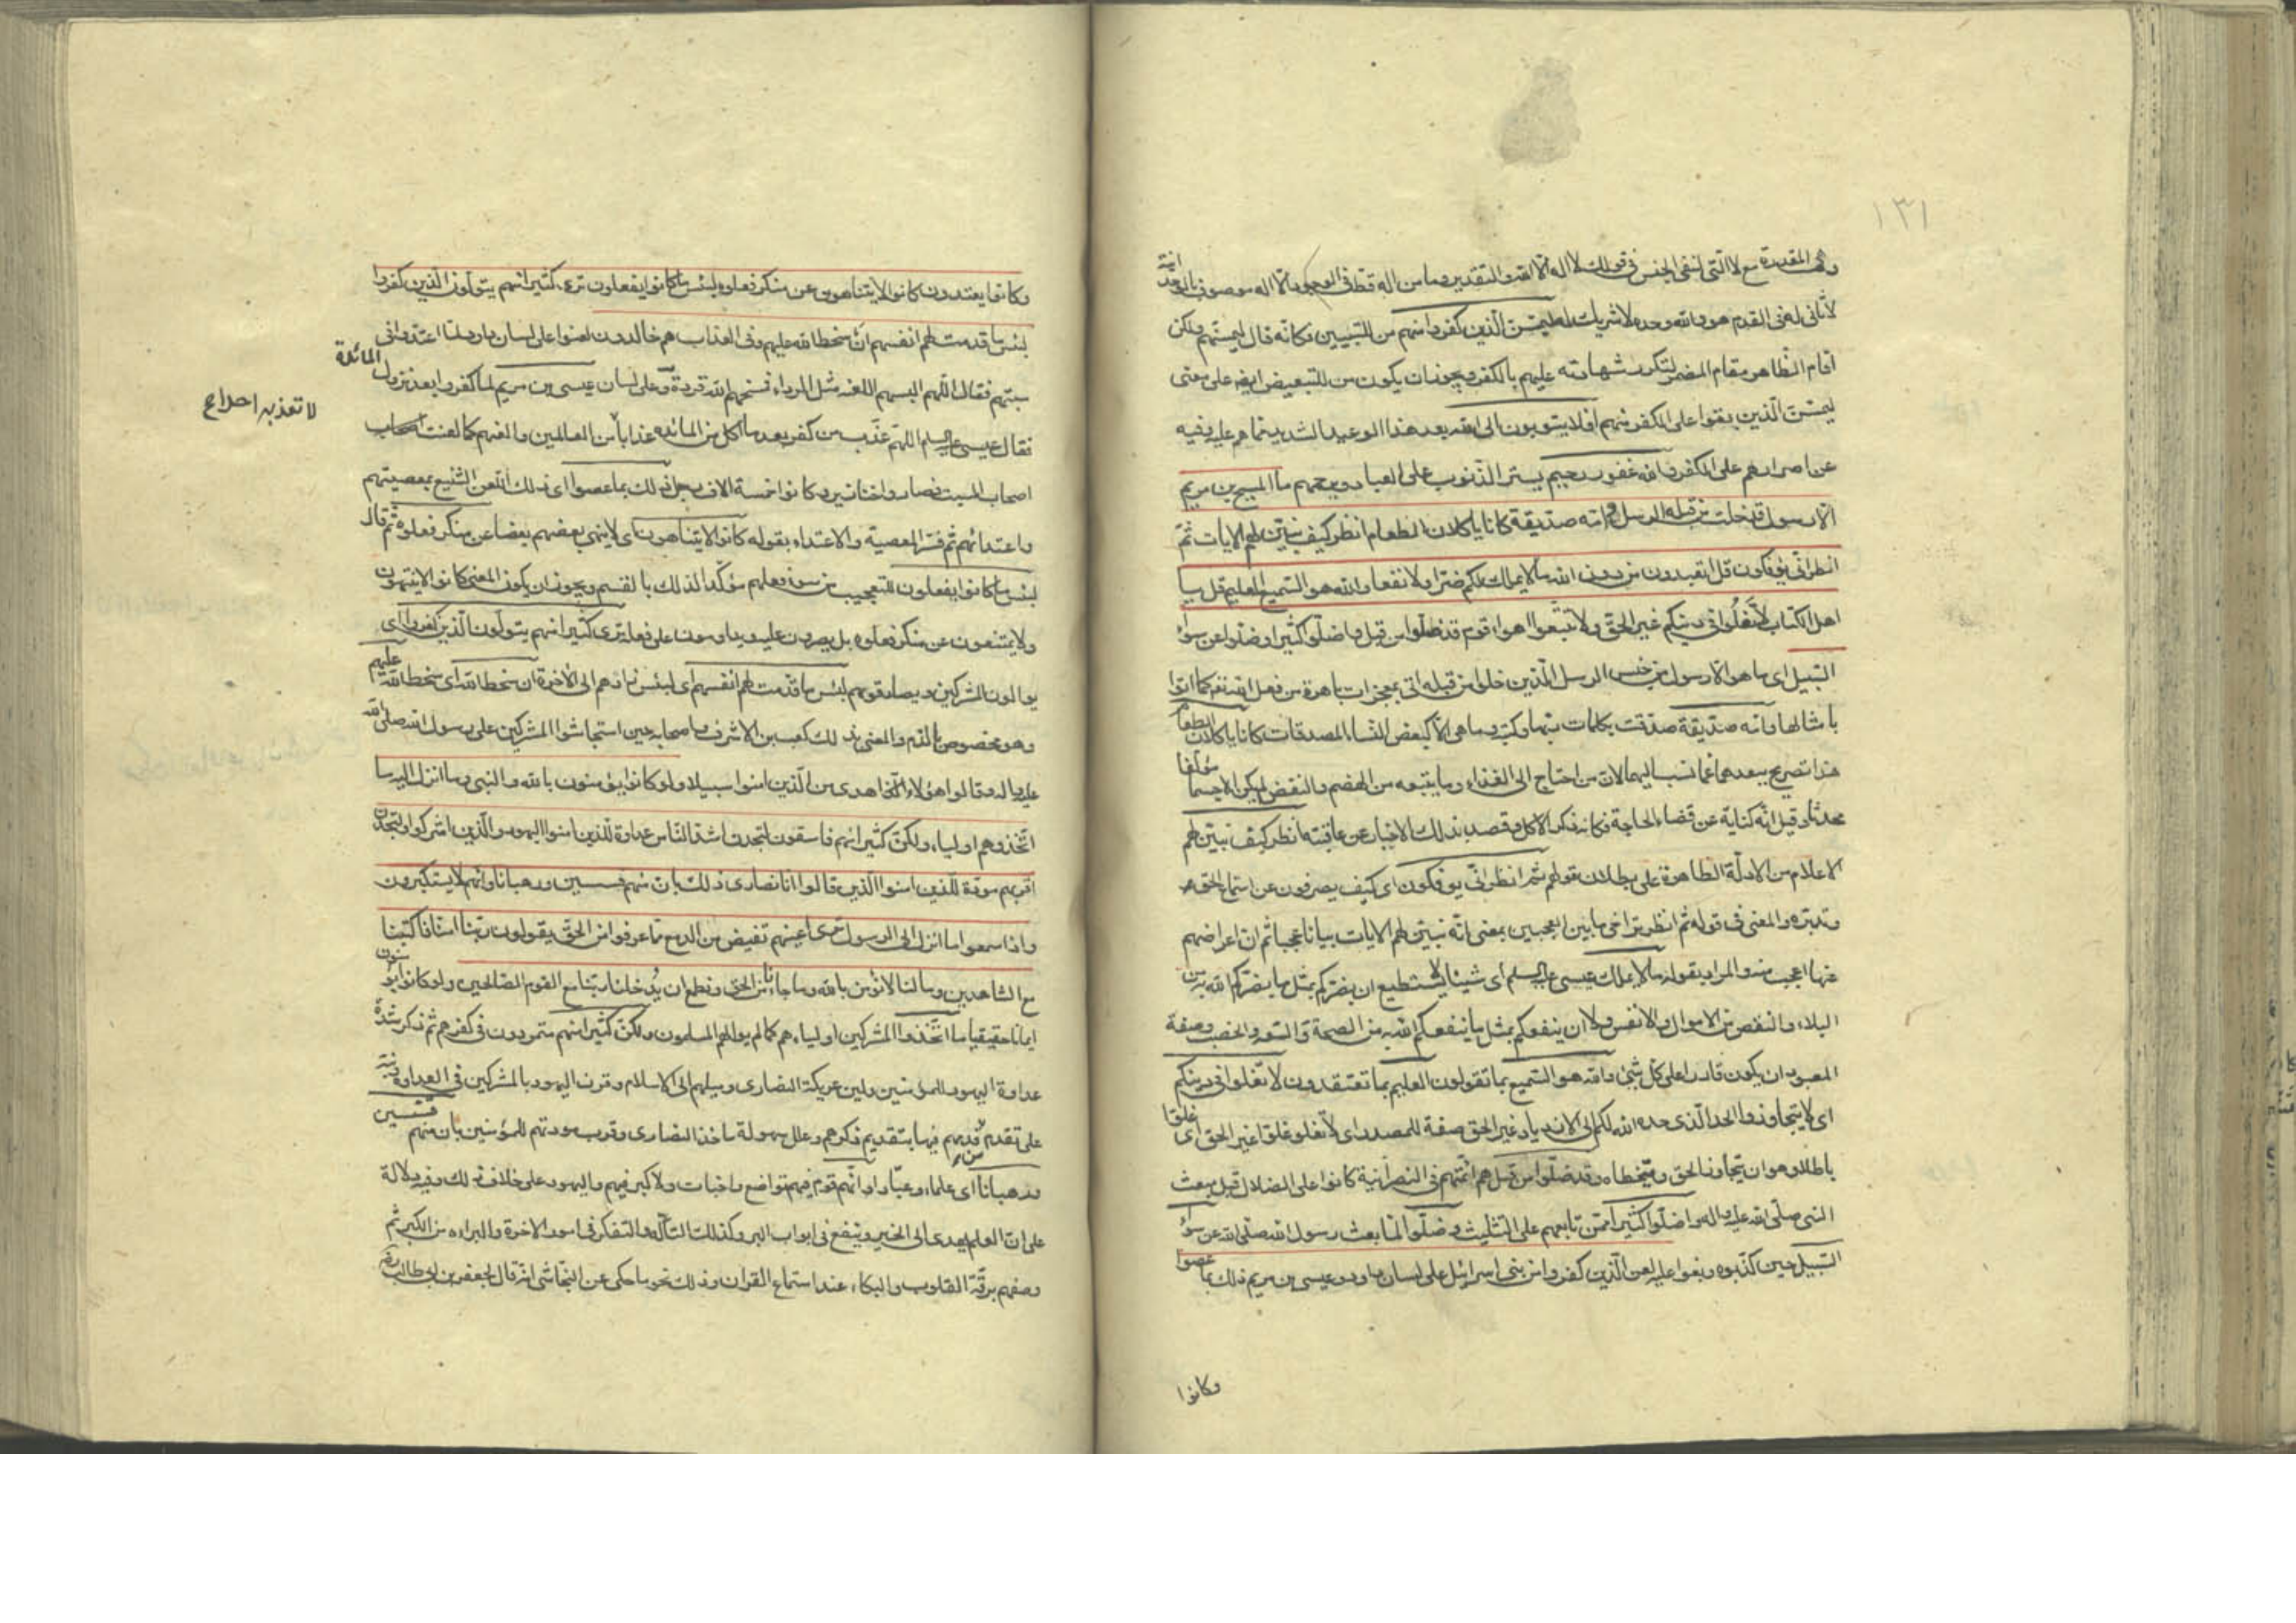 ١٣١
وهى المقدرة مع لا التى لنفى الجنس فى قولك لا اله الا الله والتقدير وما من اله قط فى الوجود الا اله موصوف بالوحدانية
لا ثانى له فى القدم هو والله وحده لا شريك له ليمسن الذين كفروا منهم من للتبيين فكانه قال ليمسنهم ولكن
اقام الظاهر مقام المضمر لتكرر شهادته عليهم بالكفر ويجوز ان يكون من للتبعيض ايضا على معنى
ليمسن الذين بقوا على الكفر منهم افلا يتوبون الى الله بعد هذا الوعيد الشديد مما هم عليه وفيه
عن اصرارهم على الكفر والله غفور رحيم يستر الذنوب على العباد ويرحمهم ما المسيح بن مريم
الا رسول قد خلت من قبله الرسل وامه صديقة كانا ياكلان الطعام انظر كيف نبين لهم الايات ثم
انظر انى يؤفكون قل اتعبدون من دون الله ما لا يملك لكم ضرا ولا نفعا والله هو السميع العليم قل يا
اهل الكتاب لا تغلوا فى دينكم غير الحق ولا تتبعوا اهواء قوم قد ضلوا من قبل واضلوا كثيرا وضلوا عن سواء
السبيل اى ما هو الا رسول من جنس الرسل الذين خلوا من قبله اتى بمعجزات باهرة من فعل الله تعالى كما اتوا
بامثالها وامه صديقة صدقت بكلمات ربها وكتبه وما هى الا كبعض النساء المصدقات كانا ياكلان الطعام
هذا تصريح ببعدهما عما نسب اليهما لان من احتاج الى الغذاء وما يتبعه من الهضم والنفض لم يكن الا جسما مؤلفا
محدثا وقيل انه كناية عن قضاء الحاجة فكانه ذكر الاكل وقصد بذلك الاخبار عن عاقبته انظر كيف نبين لهم
الاعلام من الادلة الظاهرة على بطلان قولهم ثم انظر انى يؤفكون اى كيف يصرفون عن استماع الحق
وتدبره والمعنى فى قوله ثم انظر تراخى ما بين العجبين بمعنى انه نبين لهم الايات بيانا عجبا ثم ان اعراضهم
عنها اعجب منه والمراد بقوله ما لا يملك عيسى عليه السلم اى شيئا لا يستطيع ان يضركم بمثل ما يضركم الله به من
البلاء والنقص من الاموال والانفس ولا ان ينفعكم بمثل ما ينفعكم الله به من الصحة والسعة والخصب وصفة
المعبود ان يكون قادرا على كل شىء والله هو السميع بما تقولون العليم بما تعتقدون لا تغلوا فى دينكم
اى لا يتجاوزوا الحد الذى حده الله لكم الى الازدياد غير الحق صفة للمصدر اى لا تغلو غلوا غير الحق اى غلوا
باطلا وهو ان يتجاوز الحق ويتخطاه وقد ضلوا من قبل هم ائمتهم فى النصرانية كانوا على الضلال قبل مبعث
النبى صلى الله عليه واله واضلوا كثيرا ممن تابعهم على التثليث وضلوا لما بعث رسول الله صلى الله عن سواء
السبيل حين كذبوه وبغوا عليه لعن الذين كفروا من بنى اسرائيل على لسان داود وعيسى بن مريم ذلك بما عصوا
وكانوا
وكانوا يعتدون كانوا لا يتناهون عن منكر فعلوه لبئس ما كانوا يفعلون ترى كثيرا منهم يتولون الذين كفروا
لبئس ما قدمت لهم انفسهم ان سخط الله عليهم وفى العذاب هم خالدون لعنوا على لسان داود لما اعتدوا فى
سبتهم فقال اللهم البسهم اللعنة مثل الرداء فمسخهم الله قردة وعلى لسان عيسى بن مريم لما كفروا بعد نزول المائدة
فقال عيسى عليه السلم اللهم عذب من كفر بعد ما اكل من المائده عذابا من العالمين والعنهم كما لعنت اصحاب
لا تعذبه احدا
اصحاب السبت فصاروا خنازير وكانوا خمسة الاف رجل ذلك بما عصوا اى ذلك اللعن الشنيع بمعصيتهم
واعتدائهم ثم فسر المعصية والاعتداء بقوله كانوا لا يتناهون اى لا ينهى بعضهم بعضا عن منكر فعلوه ثم قال
لبئس ما كانوا يفعلون للتعجيب من سوء فعلهم مؤكدا لذلك بالقسم ويجوز ان يكون المعنى كانوا لا ينتهون
ولا يمتنعون عن منكر فعلوه بل يصرون عليه ويداومون على فعله ترى كثيرا منهم يتولون الذين كفروا اى
يوالون المشركين ويصادقونهم لبئس ما قدمت لهم انفسهم اى لبئس زادهم الى الاخرة ان سخط الله اى سخط الله عليهم
وهو مخصوص بالذم والمعنى بذلك كعب بن الاشرف واصحابه حين استجاشوا المشركين على رسول الله صلى الله
عليه واله وقالوا هؤلاء اهدى من الذين امنوا سبيلا ولو كانوا يؤمنون بالله والنبى وما انزل اليه ما
اتخذوهم اولياء ولكن كثيرا منهم فاسقون لتجدن اشد الناس عداوة للذين امنوا اليهود والذين اشركوا ولتجدن
اقربهم مودة للذين امنوا الذين قالوا انا نصارى ذلك بان منهم قسيسين ورهبانا وانهم لا يستكبرون
واذا سمعوا ما انزل الى الرسول ترى اعينهم تفيض من الدمع مما عرفوا من الحق يقولون ربنا امنا فاكتبنا
مع الشاهدين وما لنا لا نؤمن بالله وما جاءنا من الحق ونطمع ان يدخلنا ربنا مع القوم الصالحين ولو كانوا يؤمنون
ايمانا حقيقيا ما اتخذوا المشركين اولياء هم كما لم يوالهم المسلمون ولكن كثيرا منهم متمردون فى كفرهم ثم ذكر شدة
عداوة اليهود للمؤمنين ولين عريكة النصارى وميلهم الى الاسلام وقرن اليهود بالمشركين فى العداوة ونبه
على تقدم قدمهم فيها بتقديم ذكرهم وعلل سهولة ماخذ النصارى وقرب مودتهم للمؤمنين بان منهم قسيسين
ورهبانا اى علماء وعبادا وانهم قوم فيهم تواضع واخبات ولا كبر فيهم واليهود على خلاف ذلك وفيه دلالة
على ان العلم يهدى الى الخير وينفع فى ابواب البر وكذلك التاله والتفكر فى امور الاخرة والبراءه من الكبر ثم
وصفهم برقة القلوب والبكاء عند استماع القران وذلك نحو ما حكى عن النجاشى انه قال لجعفر بن ابى طالب